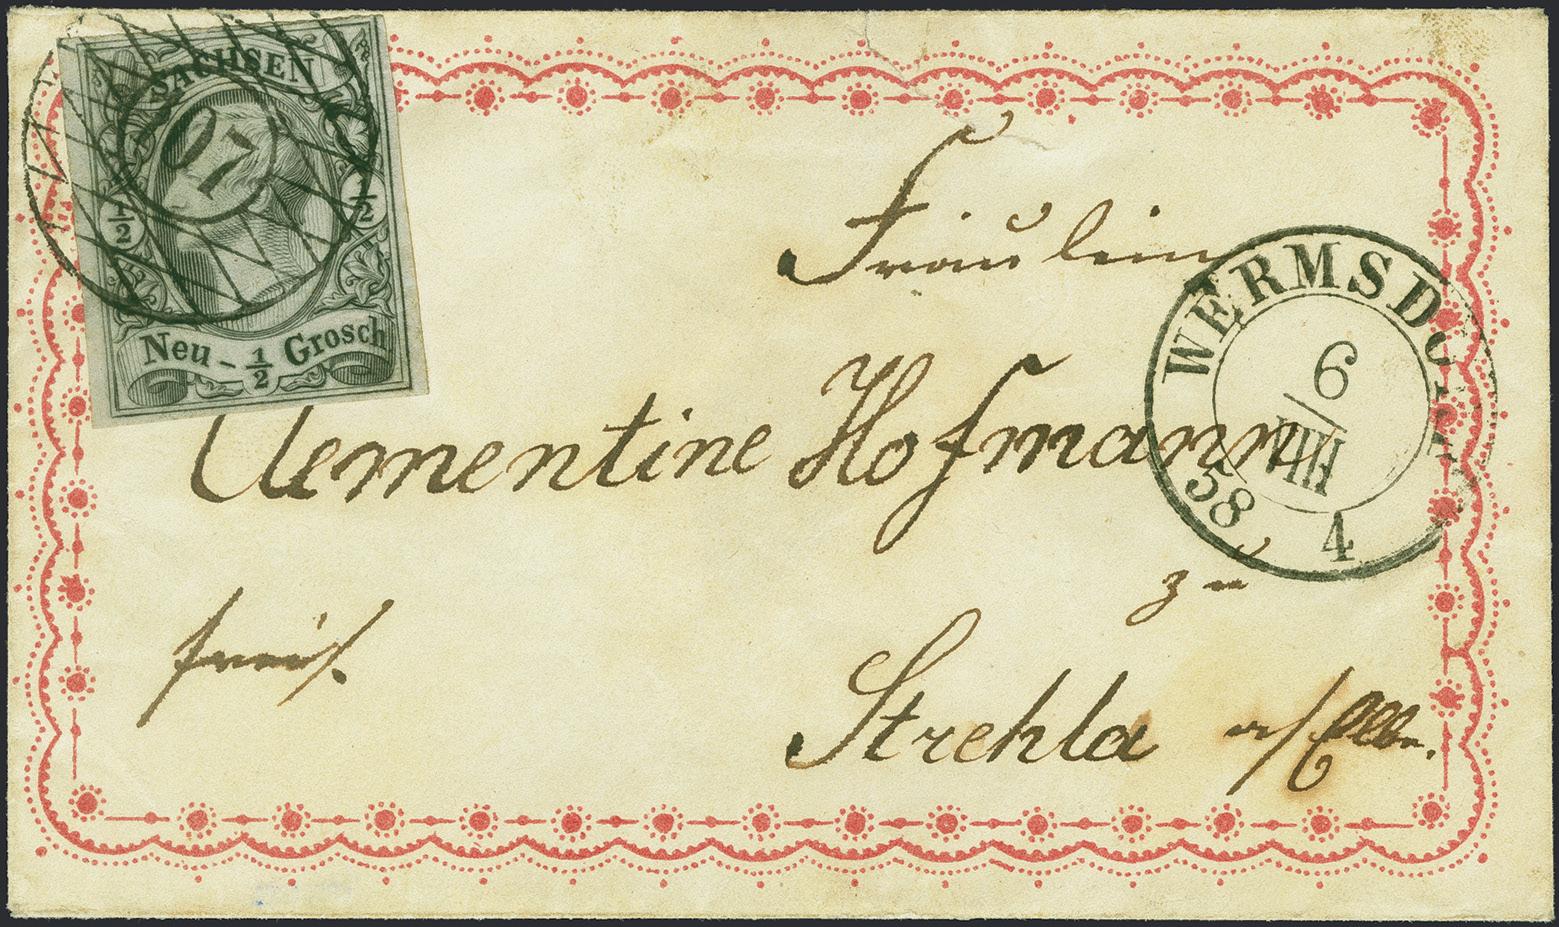 SACHSEN
½ ½
Neu - ½ Grosch
Fräulein
Clementine Hofmann
WERMSDORF
6
VIII
58 4
zu
frei.
Strehla a/Elbe.